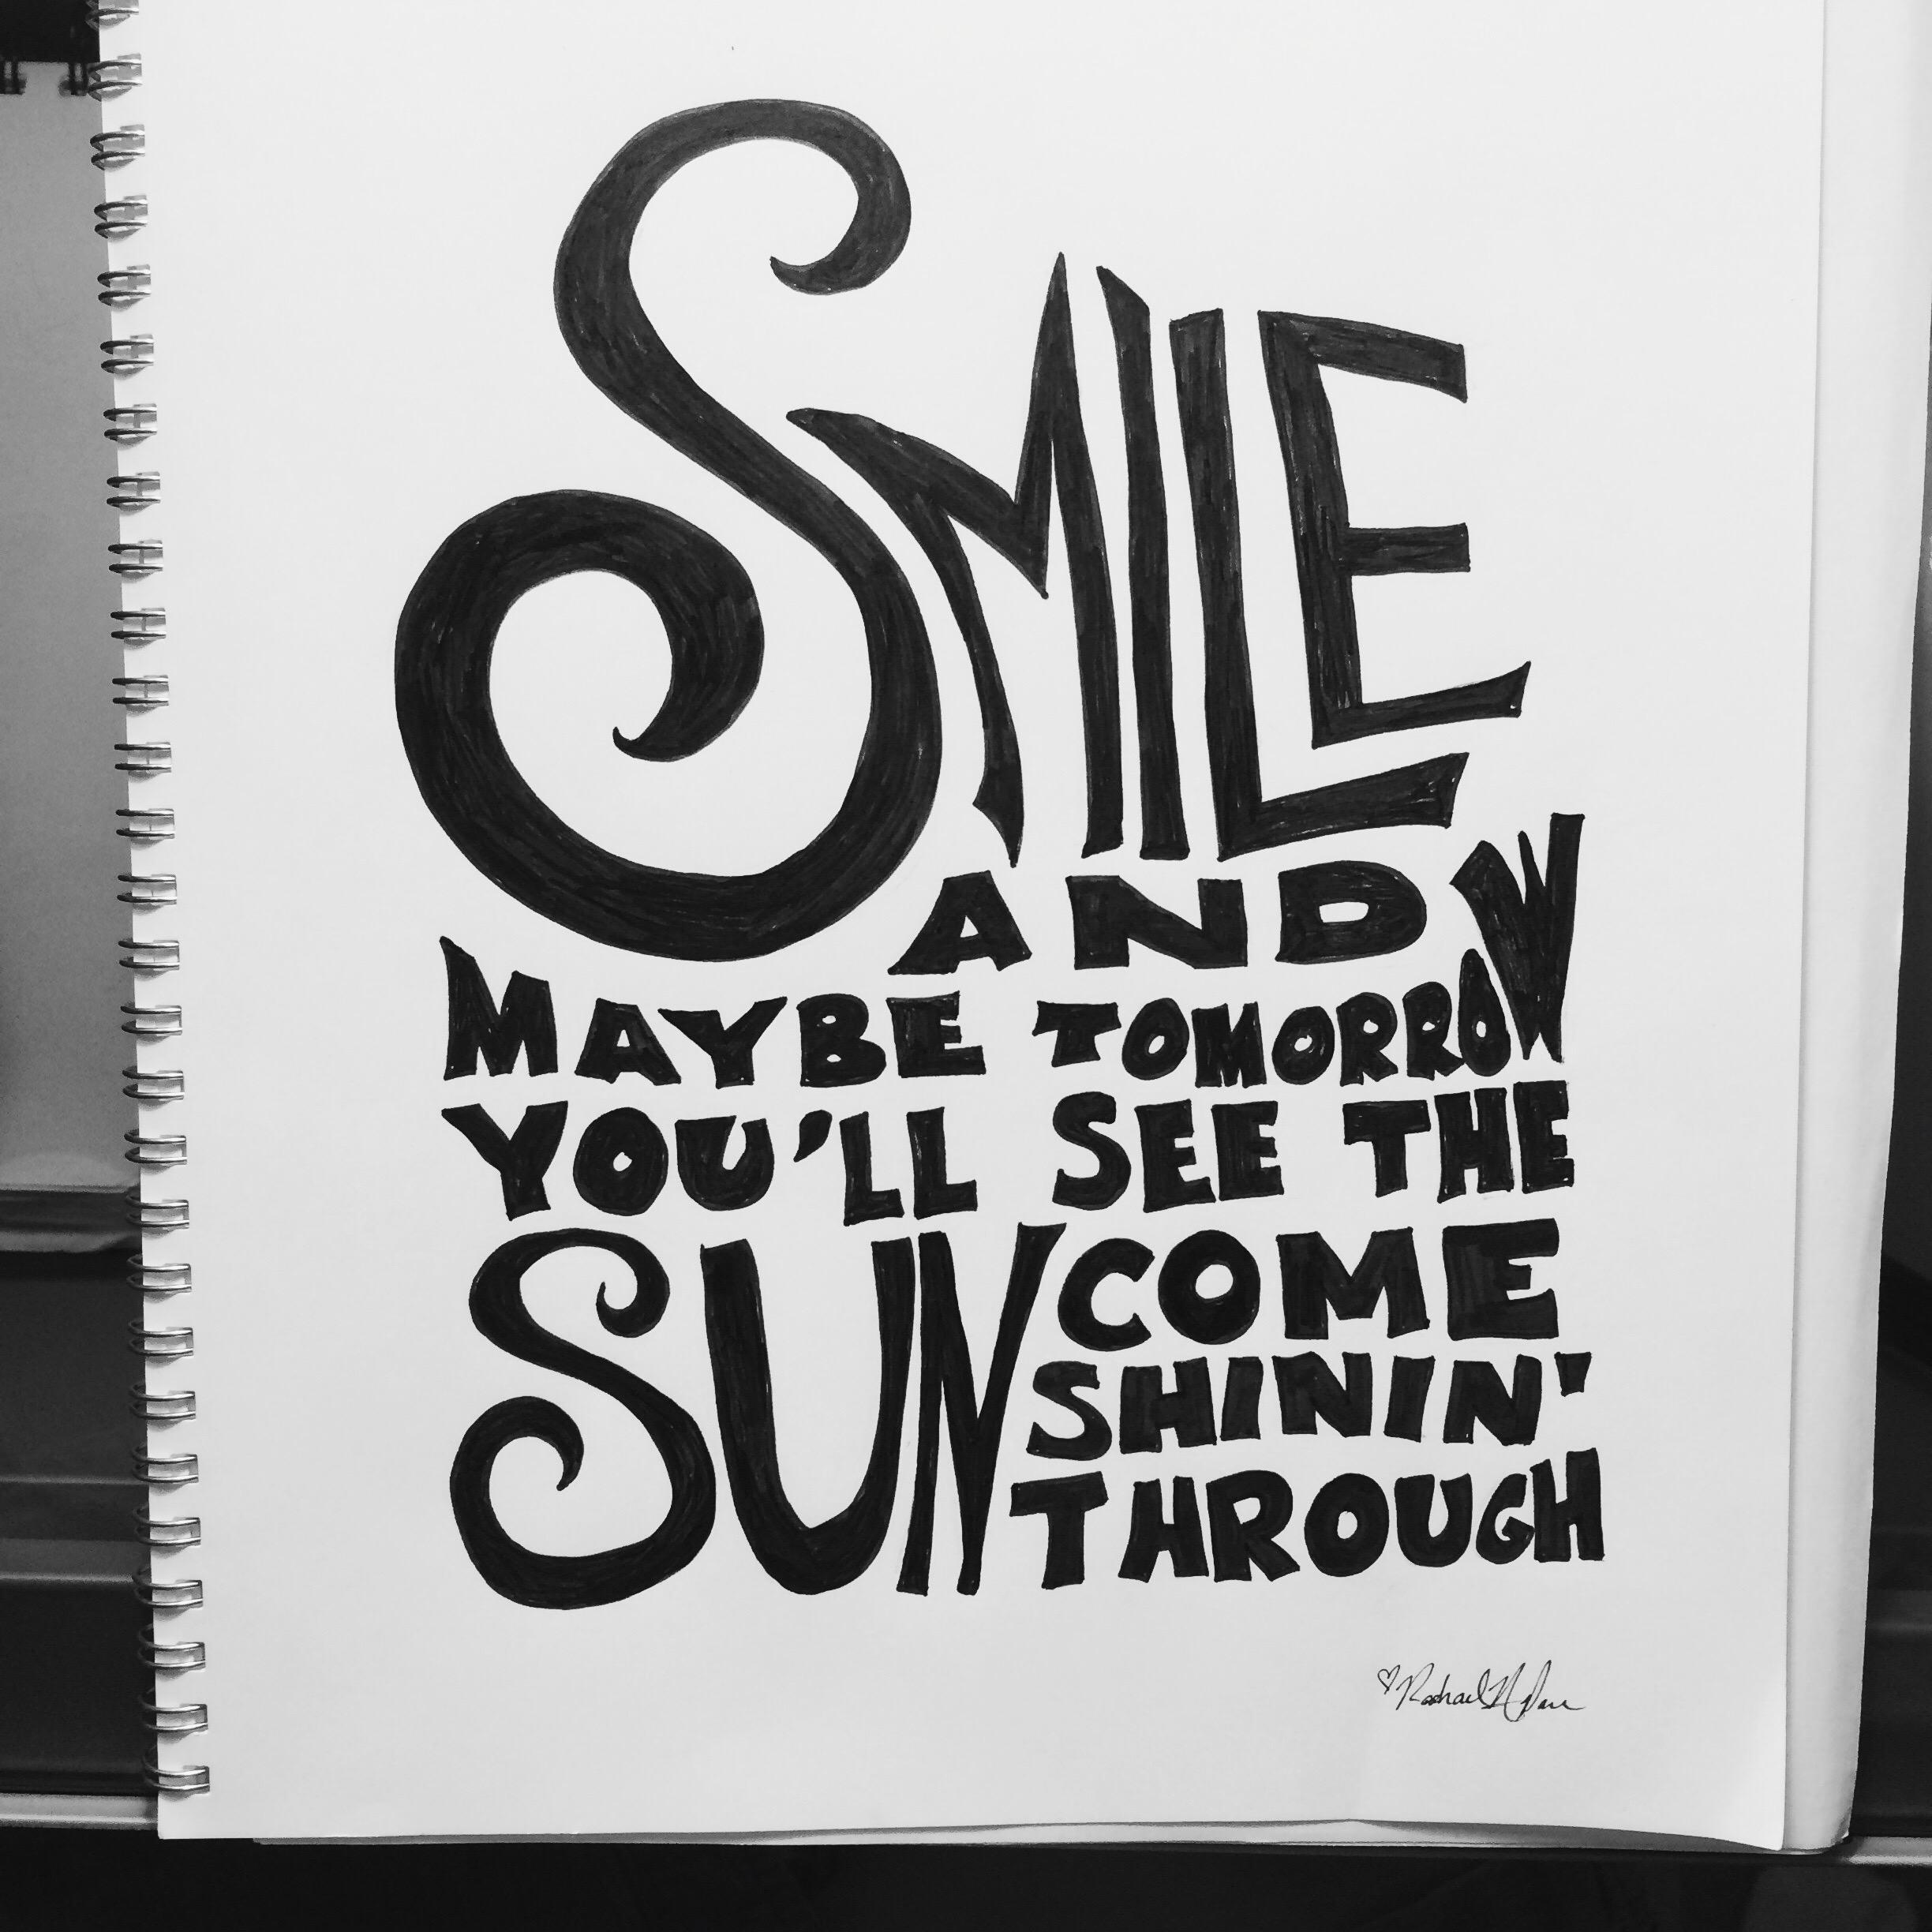 SMILE
AND
MAYBE TOMORROW
YOU'LL SEE THE
SUN COME
SHININ'
THROUGH